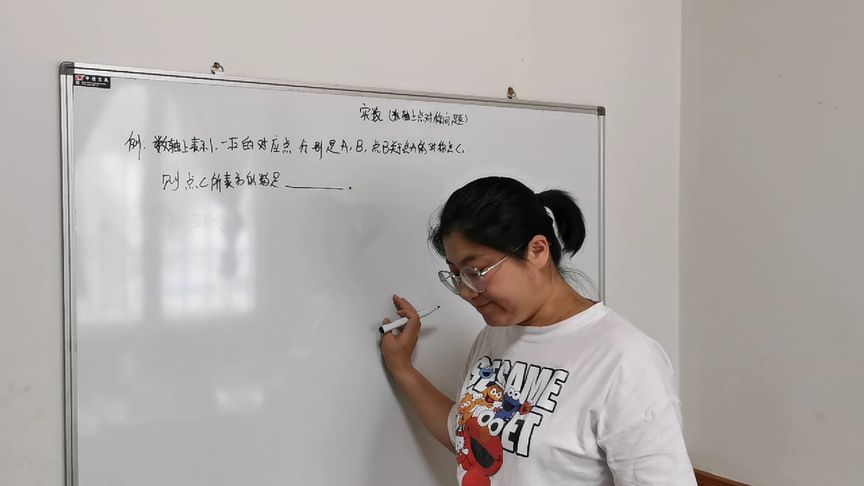 中煌文具
实数(数轴上点对称问题)
例:数轴上表示1,-√5的对应点分别是A,B,点B关于点A的对称点C,
则点C所表示的数是______.
SESAME
STREET